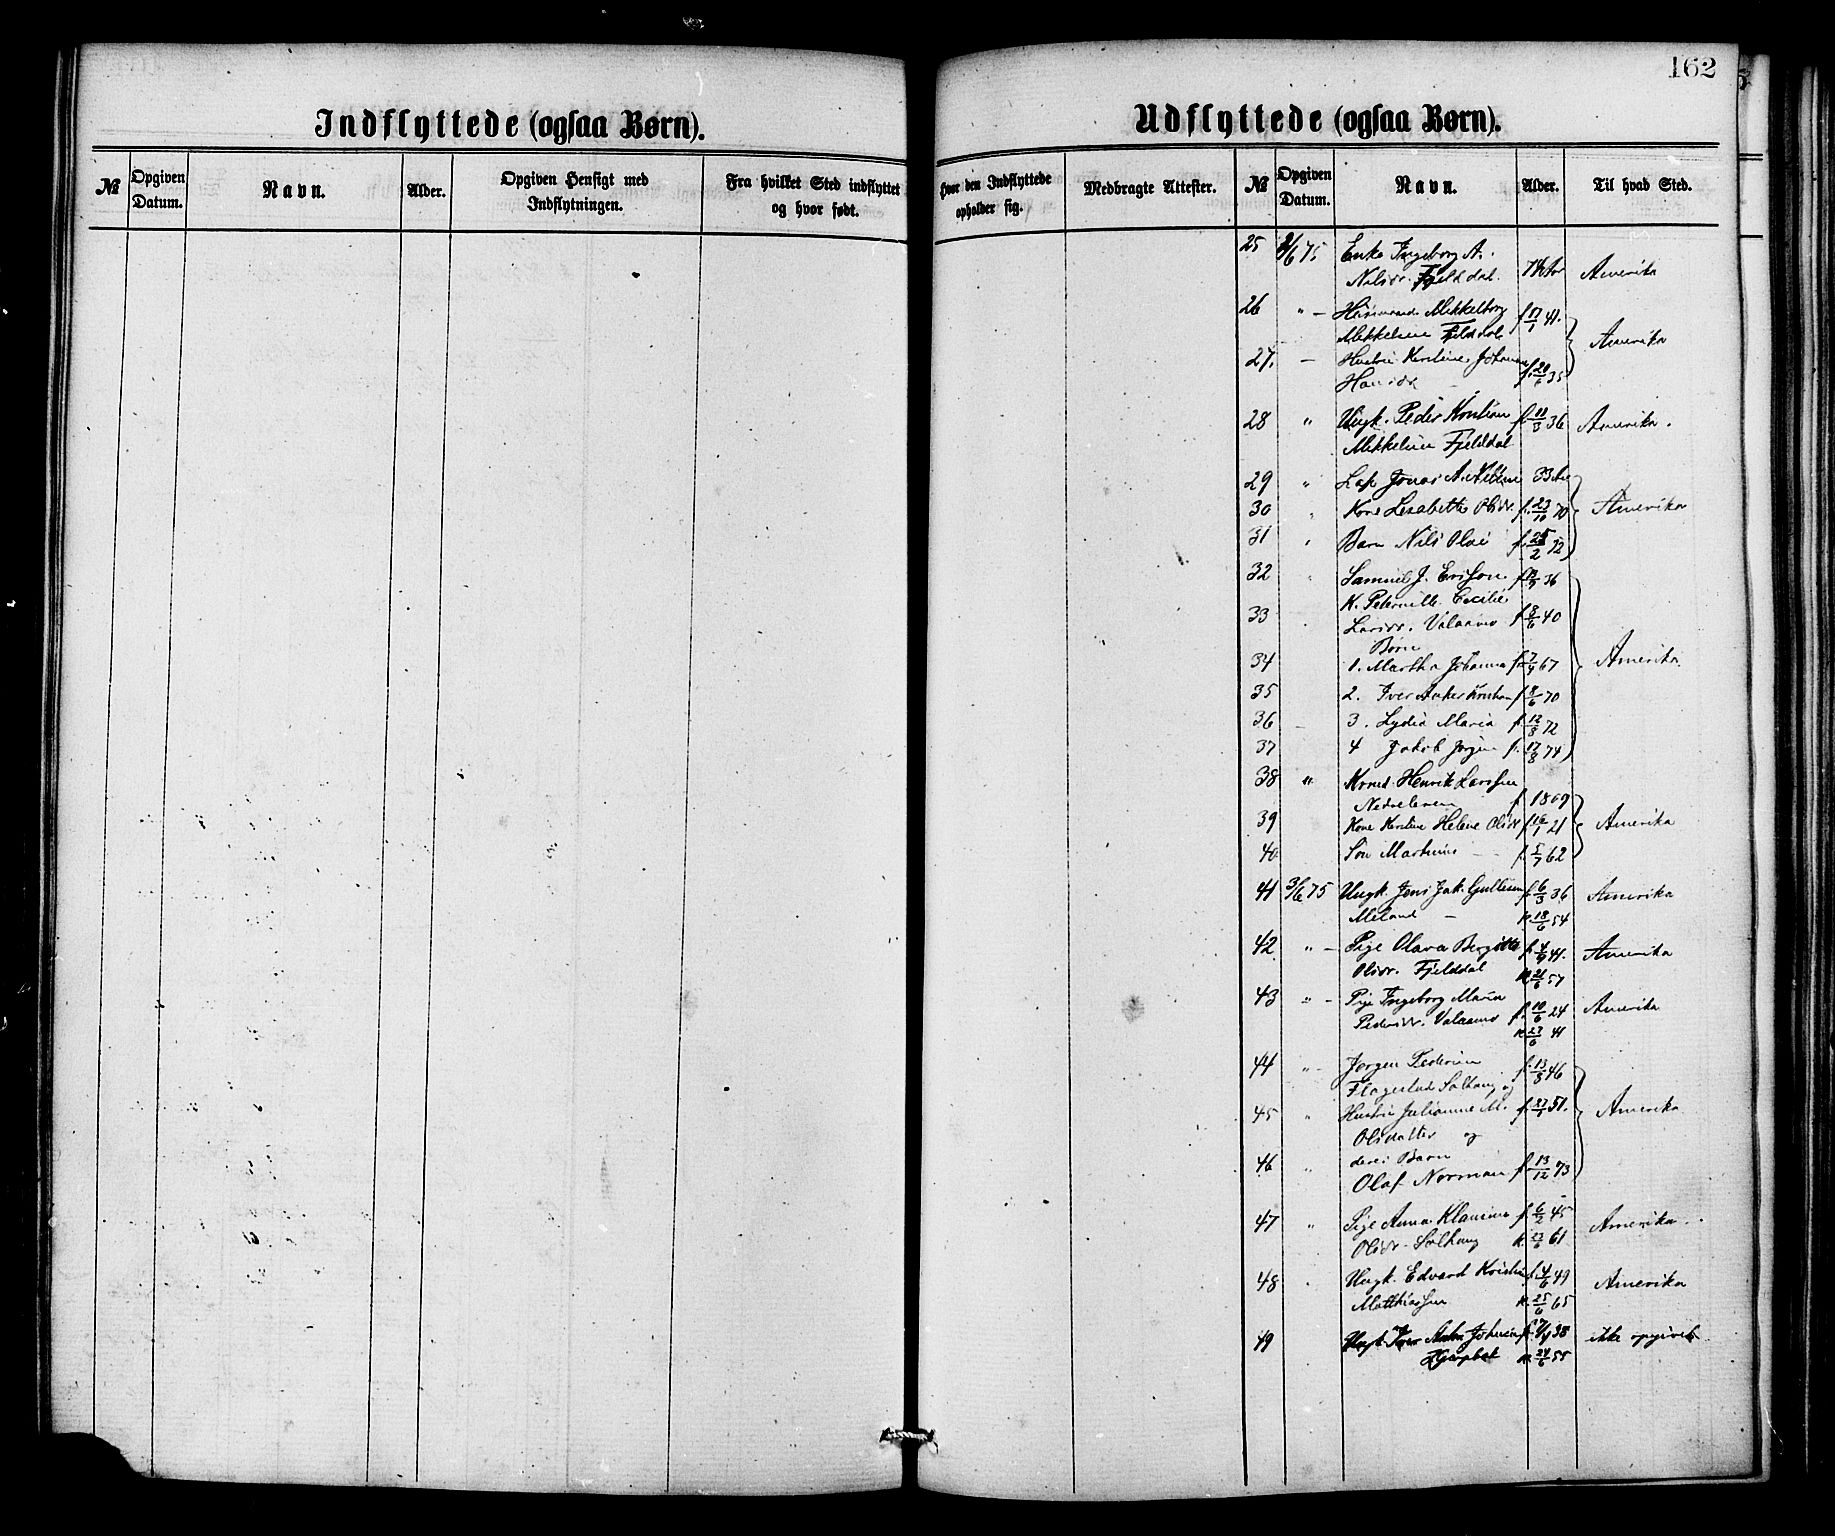 162
Indflyttede (ogsaa Børn).
Udflyttede (ogsaa Børn).
№
Opgiven Datum.
Navn.
Alder.
Opgiven Hensigt med Indflytningen.
Fra hvilket Sted indflyttet og hvor født.
Hvor den Indflyttede opholder sig.
Medbragte Attester.
№
Opgiven Datum.
Navn.
Alder.
Til hvad Sted.
25 2/6 75. Enke Ingeborg A.
Nilsdr. Fjelddal. Amerika
26 " — Mikkelborg f. 17/1 41.
Mikkelsen Fjelddal Amerika
27. — Hustru Kerstine Johanna
Hansdr f. 20/6 35
28 " Ungk. Peder Kristian f. 36 Amerika.
Mikkelsen Fjelddal
29 " Jonas A. Nilsen 33 Aar
30 " Kone Lisabeth Olsdr f. 23/10 70 Amerika
31 " Barn Nils Olai f. 25/2 72
32 " Samuel J. Erikson 36
K. Peternille Cecilie
33 Larsdr. Valaamo f. 8/6 40
Børn
34 1. Martha Johanna f. 7/4 67 Amerika
35 2. Iver Anker Kristian f. 8/6 70
36 3. Lydia Maria f. 12/8 72
37 4 Jakob Jørgen f. 17/8 74
38 " Henrik Larssen
f. 1809
39 Kone Kerstine Helene Olsdr f. 16/1 21 Amerika
40 Søn Martinus — f. 5/7 62
41 3/6 75 Ungk. Jens Jak. Gulliksen f. 6/3 36 Amerika
Meland — K. 18/6 54
42 " — Pige Olava Bergitte f. 4/9 41. Amerika
Olsdr. Fjelddal K. 21/6 57
43 " — Pige Ingeborg Maria
Pedersdr. Valaamo f. 10/6 24 Amerika
K. 27/6 41
44 " — Jørgen Pedersen f. 13/8 46
Flagestad Solhaug og
45 " Hustru Julianne M. f. 27/1 51. Amerika
Olsdatter og
46 " deres Barn
Olaf Norman f. 13/12 73
47 " Pige Anna Klausine f. 6/2 45 Amerika.
Olsdr. Solhaug K. 23/6 61
48 Ungk. Edvard Kristian f. 4/6 49 Amerika
Matthiassen K. 25/6 65
49 Ungk. Iver Anton Johnsen 38 ikke opgivet
K. 24/6 55